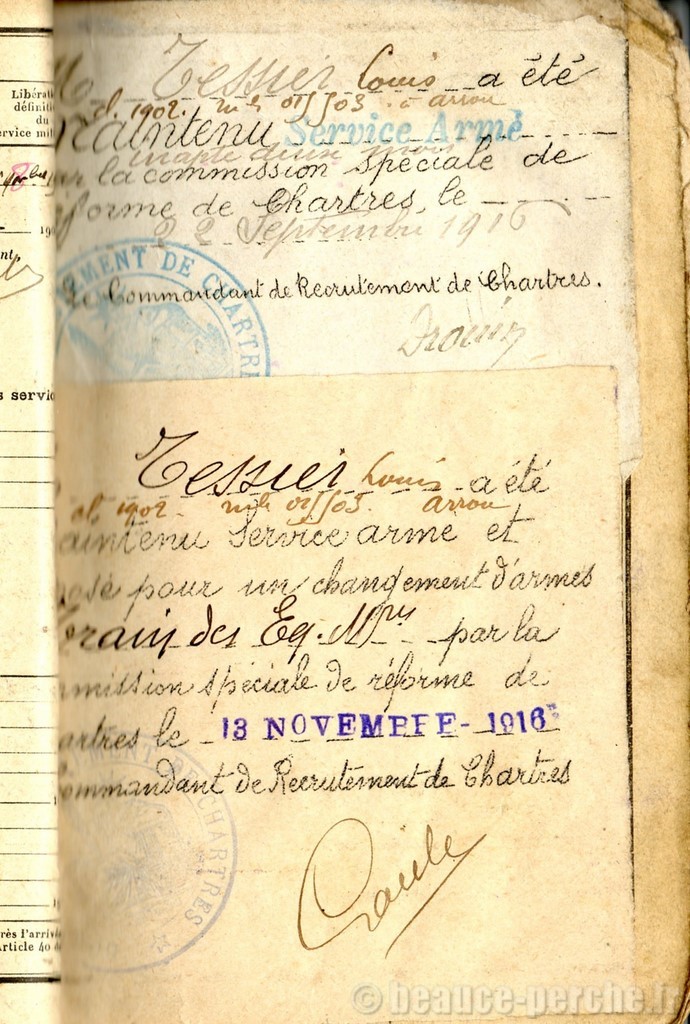 Libérat
définiti
du
service mil
Tessier Louis a été
cl. 1902. mle 01503. à arrou
Maintenu Service Armé
inapte deux mois
par la commission spéciale de
réforme de Chartres, le
22 Septembre 1916
Le Commandant de Recrutement de Chartres.
EMENT DE CHARTRE
s servic
Tessier Louis a été
cl. 1902. mle 01503. arrou
aintenu Service armé et
posé pour un changement d'armes
Train des Eq. Mres par la
mmission spéciale de réforme de
artres le 13 NOVEMBRE - 1916
ommandant de Recrutement de Chartres
DE CHARTRES
rès l'arriv
Article 40 d
© beauce-perche.fr